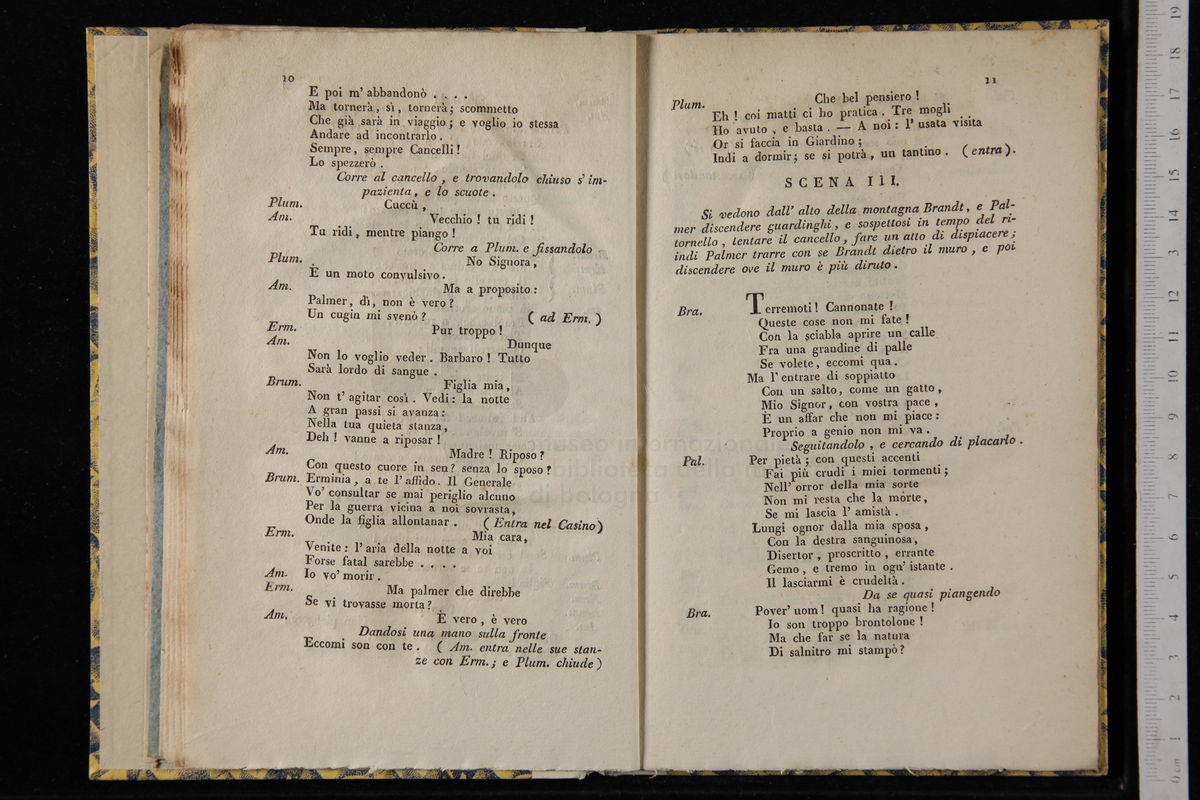 10
E poi m' abbandonò . . . .
Ma tornerà, sì, tornerà; scommetto
Che già sarà in viaggio; e voglio io stessa
Andare ad incontrarlo.
Sempre, sempre Cancelli!
Lo spezzerò.
Corre al cancello, e trovandolo chiuso s' im-
pazienta, e lo scuote.
Plum. Cuccù,
Am. Vecchio! tu ridi!
Tu ridi, mentre piango!
Corre a Plum. e fissandolo
Plum. No Signora,
È un moto convulsivo.
Am. Ma a proposito:
Palmer, dì, non è vero?
Un cugin mi svenò? ( ad Erm. )
Erm. Pur troppo!
Am. Dunque
Non lo voglio veder. Barbaro! Tutto
Sarà lordo di sangue.
Brum. Figlia mia,
Non t' agitar così. Vedi: la notte
A gran passi si avanza:
Nella tua quieta stanza,
Deh! vanne a riposar!
Am. Madre! Riposo?
Con questo cuore in sen? senza lo sposo?
Brum. Erminia, a te l' affido. Il Generale
Vo' consultar se mai periglio alcuno
Per la guerra vicina a noi sovrasta,
Onde la figlia allontanar. ( Entra nel Casino)
Erm. Mia cara,
Venite: l' aria della notte a voi
Forse fatal sarebbe . . . .
Am. Io vo' morir.
Erm. Ma palmer che direbbe
Se vi trovasse morta?
Am. È vero, è vero
Dandosi una mano sulla fronte
Eccomi son con te. ( Am. entra nelle sue stan-
ze con Erm.; e Plum. chiude )
11
Plum. Che bel pensiero!
Eh! coi matti ci ho pratica. Tre mogli
Ho avuto, e basta. — A noi: l' usata visita
Or si faccia in Giardino;
Indi a dormir; se si potrà, un tantino. ( entra ).
SCENA III.
Si vedono dall' alto della montagna Brandt, e Pal-
mer discendere guardinghi, e sospettosi in tempo del ri-
tornello, tentare il cancello, fare un atto di dispiacere;
indi Palmer trarre con se Brandt dietro il muro, e poi
discendere ove il muro è più diruto.
Bra. Terremoti! Cannonate!
Queste cose non mi fate!
Con la sciabla aprire un calle
Fra una grandine di palle
Se volete, eccomi qua.
Ma l' entrare di soppiatto
Con un salto, come un gatto,
Mio Signor, con vostra pace,
È un affar che non mi piace:
Proprio a genio non mi va.
Seguitandolo, e cercando di placarlo.
Pal. Per pietà; con questi accenti
Fai più crudi i miei tormenti;
Nell' orror della mia sorte
Non mi resta che la morte,
Se mi lascia l' amistà.
Lungi ognor dalla mia sposa,
Con la destra sanguinosa,
Disertor, proscritto, errante
Gemo, e tremo in ogn' istante.
Il lasciarmi è crudeltà.
Da se quasi piangendo
Bra. Pover' uom! quasi ha ragione!
Io son troppo brontolone!
Ma che far se la natura
Di salnitro mi stampò?
museo internazionale
biblioteca della
di bologna
0 cm 1 2 3 4 5 6 7 8 9 10 11 12 13 14 15 16 17 18 19